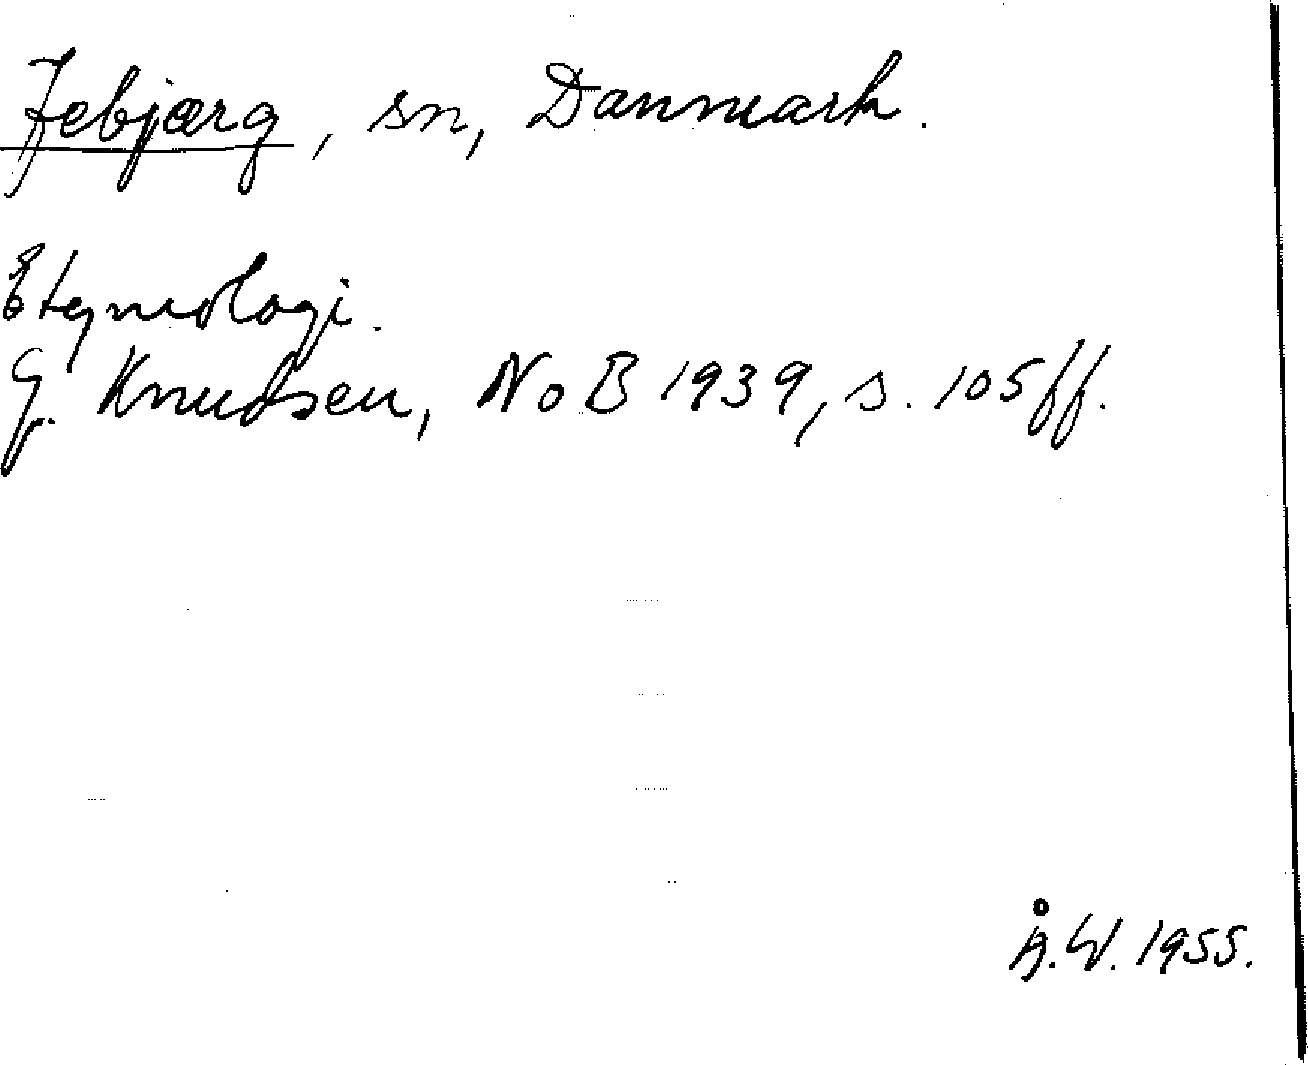 Jebjærg, sn, Danmark.
Etymologi.
G. Knudsen, NoB 1939, s. 105ff.
Å.W. 1955.